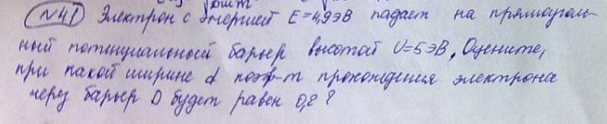 №41 Электрон с энергией E=4,9эВ падает на прямоуголь-
ный потенциальный барьер высотой U=5эВ, Оцените,
при какой ширине d коэф-т прохождения электрона
через барьер D будет равен 0,2?